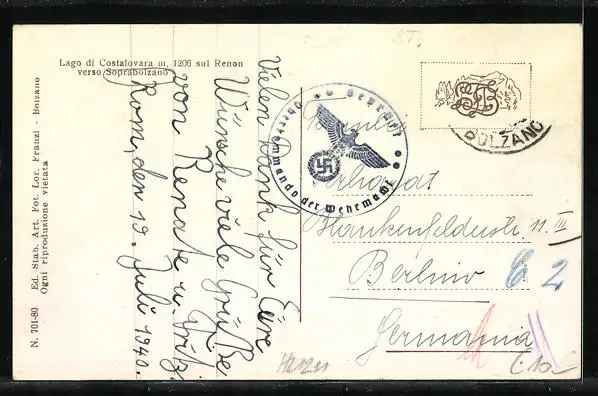 Lago di Costalovara m, 1206 sul Renon
verso Soprabolzano
Vielen Dank für Eure
Wünsche viele Grüße
von Renate u. Fritz.
Rom, den 19. Juli 1940.
N. 701-80 Ed. Stab. Art. Fot. Lor. Franzl - Bolzano
Ogni riproduzione vietata
Oberkommando der Wehrmacht
Geprüft
BOLZANO
Familie
Blankenfelderstr 11. III
Berlino C 2
Germania